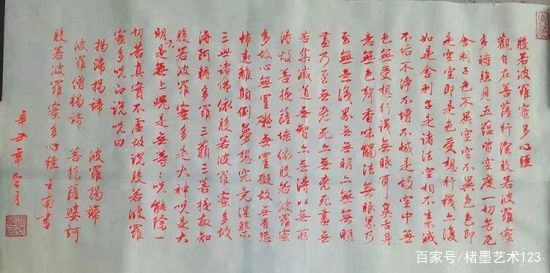 般若波羅蜜多心經
觀自在菩薩行深般若波羅蜜
多時照見五蘊皆空度一切苦厄
舍利子色不異空空不異色色即
是空空即是色受想行識亦復
如是舍利子是諸法空相不生不滅
不垢不淨不增不減是故空中無
色無受想行識無眼耳鼻舌身
意無色聲香味觸法無眼界乃
至無意識界無無明亦無無明
盡乃至無老死亦無老死盡無
苦集滅道無智亦無得以無所
得故菩提薩埵依般若波羅蜜
多故心無罣礙無罣礙故無有恐
怖遠離顛倒夢想究竟涅槃
三世諸佛依般若波羅蜜多故
得阿耨多羅三藐三菩提故知
般若波羅蜜多是大神咒是大
明咒是無上咒是無等等咒能除一
切苦真實不虛故說般若波羅
蜜多咒即說咒曰
揭諦揭諦 波羅揭諦
波羅僧揭諦 菩提薩婆訶
般若波羅蜜多心經 書
辛丑年 月
百家号/楮墨艺术123